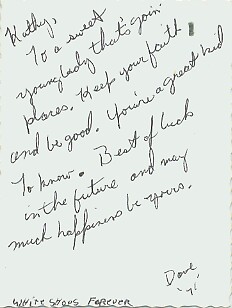 Kathy,
To a sweet
young lady that's goin'
places. Keep your faith
and be good. You're a great kid
to know. Best of luck
in the future and may
much happiness be yours.
Dave
'71
WHITE SHOES FOREVER